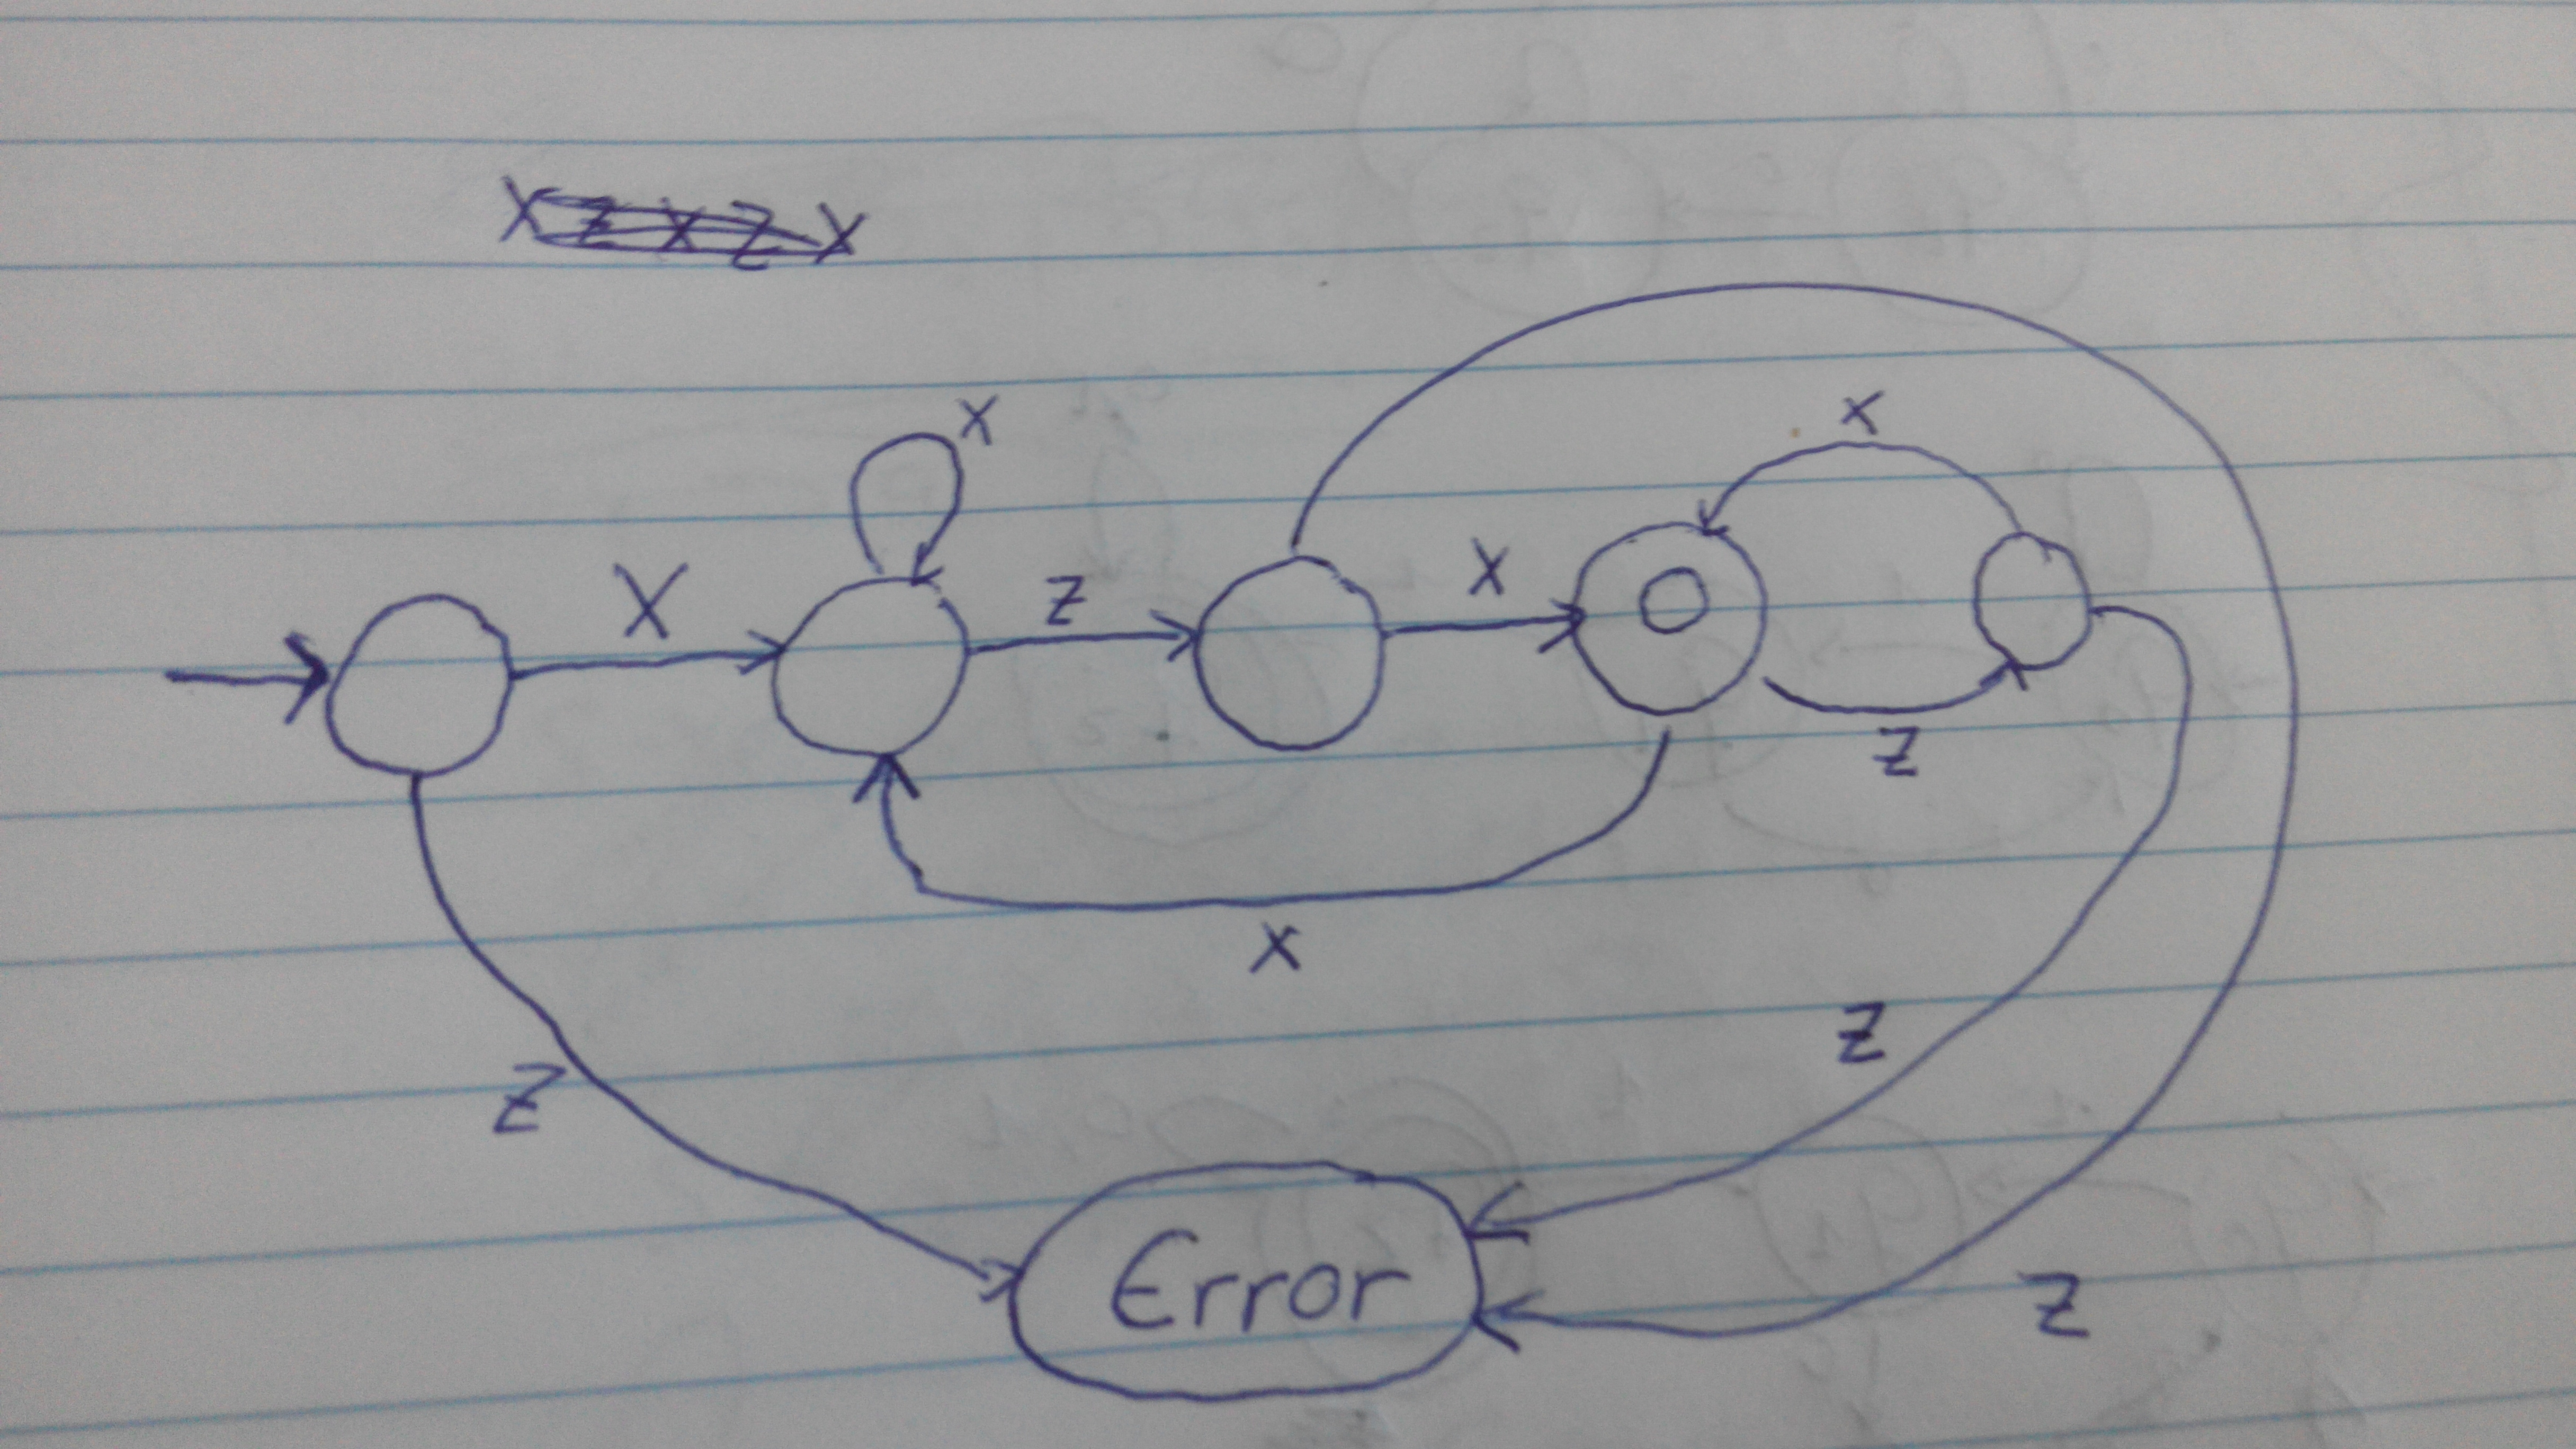 XZXZX
X
X
X
Z
X
X
Z
X
Z
Z
Error
Z